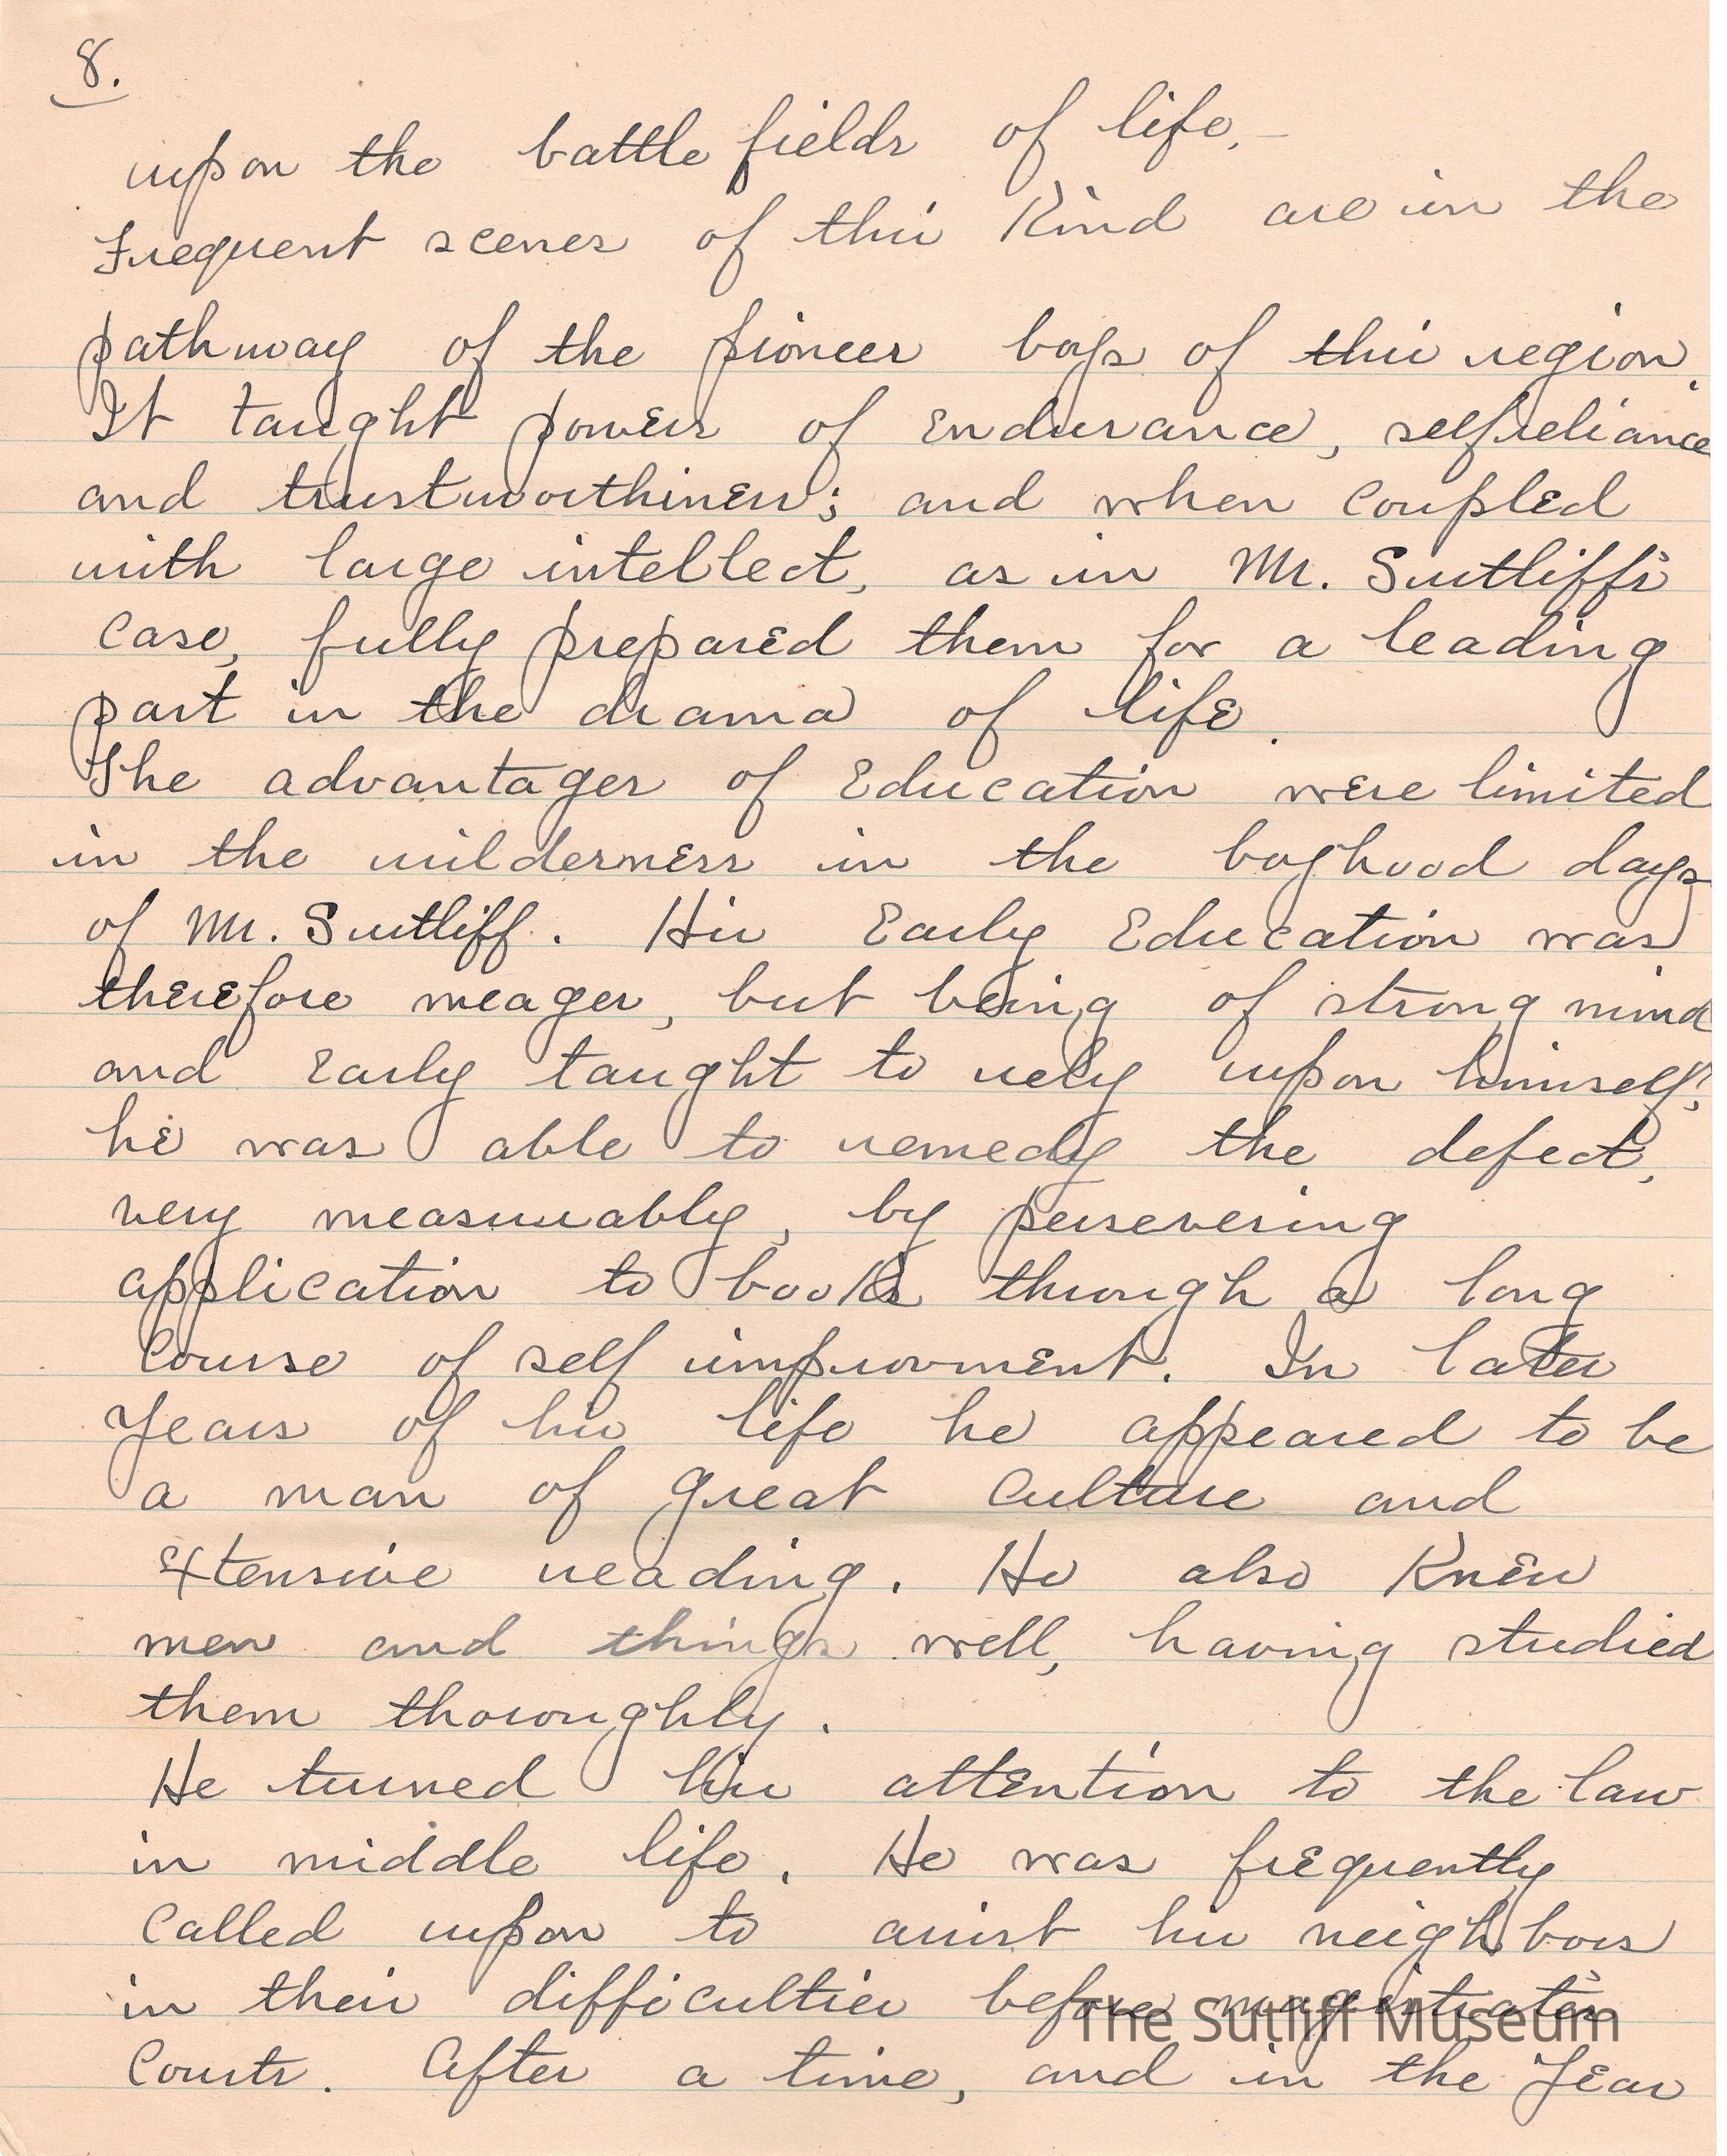 8.
upon the battle fields of life.
Frequent scenes of this Kind are in the
pathway of the pioneer boys of this region.
It taught powers of Endurance, selfreliance
and trustworthiness; and when coupled
with large intellect, as in Mr. Sutliff's
case, fully prepared them for a leading
part in the drama of life.
The advantages of Education were limited
in the wilderness in the boyhood days
of Mr. Sutliff. His Early Education was
therefore meager, but being of strong mind
and Early taught to rely upon himself,
he was able to remedy the defect,
very measurably, by persevering
application to books through a long
Course of self improvment. In later
Years of his life he appeared to be
a man of great Culture and
Extensive reading. He also Knew
men and things well, having studied
them thoroughly.
He turned his attention to the law
in middle life. He was frequently
Called upon to assist his neighbors
in their difficulties before magistrate's
The Sutliff Museum
Courts. After a time, and in the Year